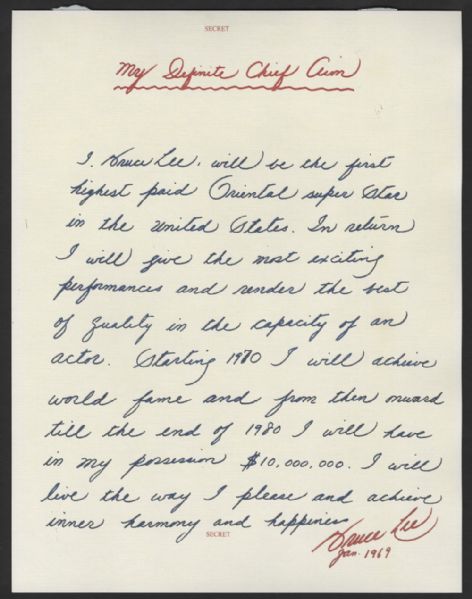 SECRET
My Definite Chief Aim
I, Bruce Lee, will be the first
highest paid Oriental super Star
in the United States. In return
I will give the most exciting
performances and render the best
of quality in the capacity of an
actor. Starting 1970 I will achieve
world fame and from then onward
till the end of 1980 I will have
in my possession $10,000,000. I will
live the way I please and achieve
inner harmony and happiness
SECRET
Bruce Lee
Jan. 1969